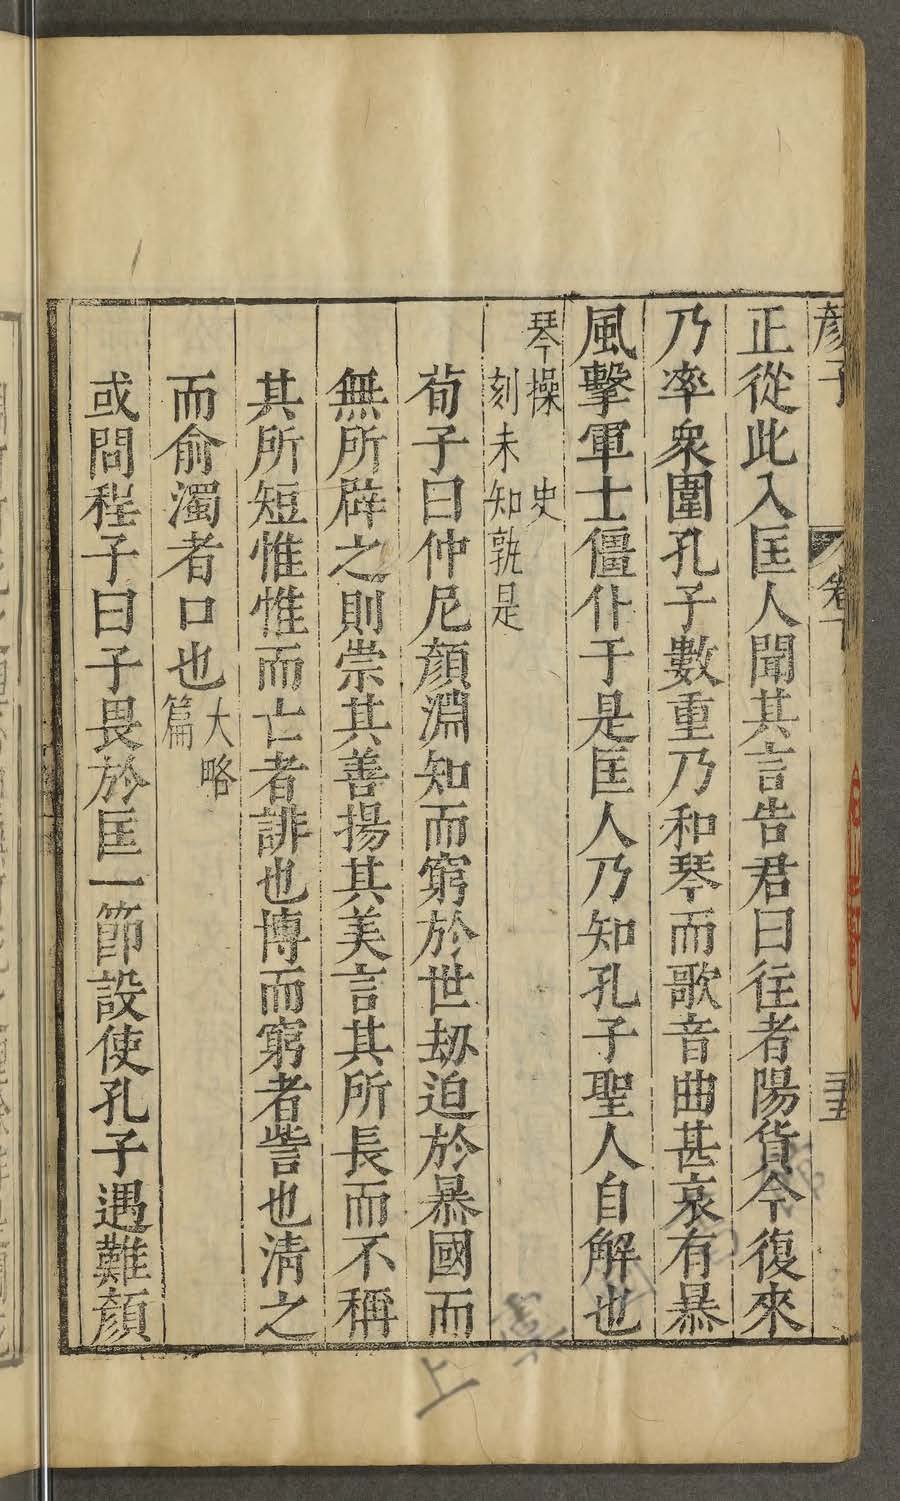 顏子 卷下 三五
正從此入匡人聞其言告君曰往者陽貨今復來
乃率衆圍孔子數重乃和琴而歌音曲甚哀有暴
風擊軍士僵仆于是匡人乃知孔子聖人自解也
琴操 史
刻未知孰是
荀子曰仲尼顏淵知而窮於世劫迫於暴國而
無所辟之則崇其善揚其美言其所長而不稱
其所短惟惟而亡者誹也博而窮者訾也清之
而俞濁者口也大略
篇
或問程子曰子畏於匡一節設使孔子遇難顏